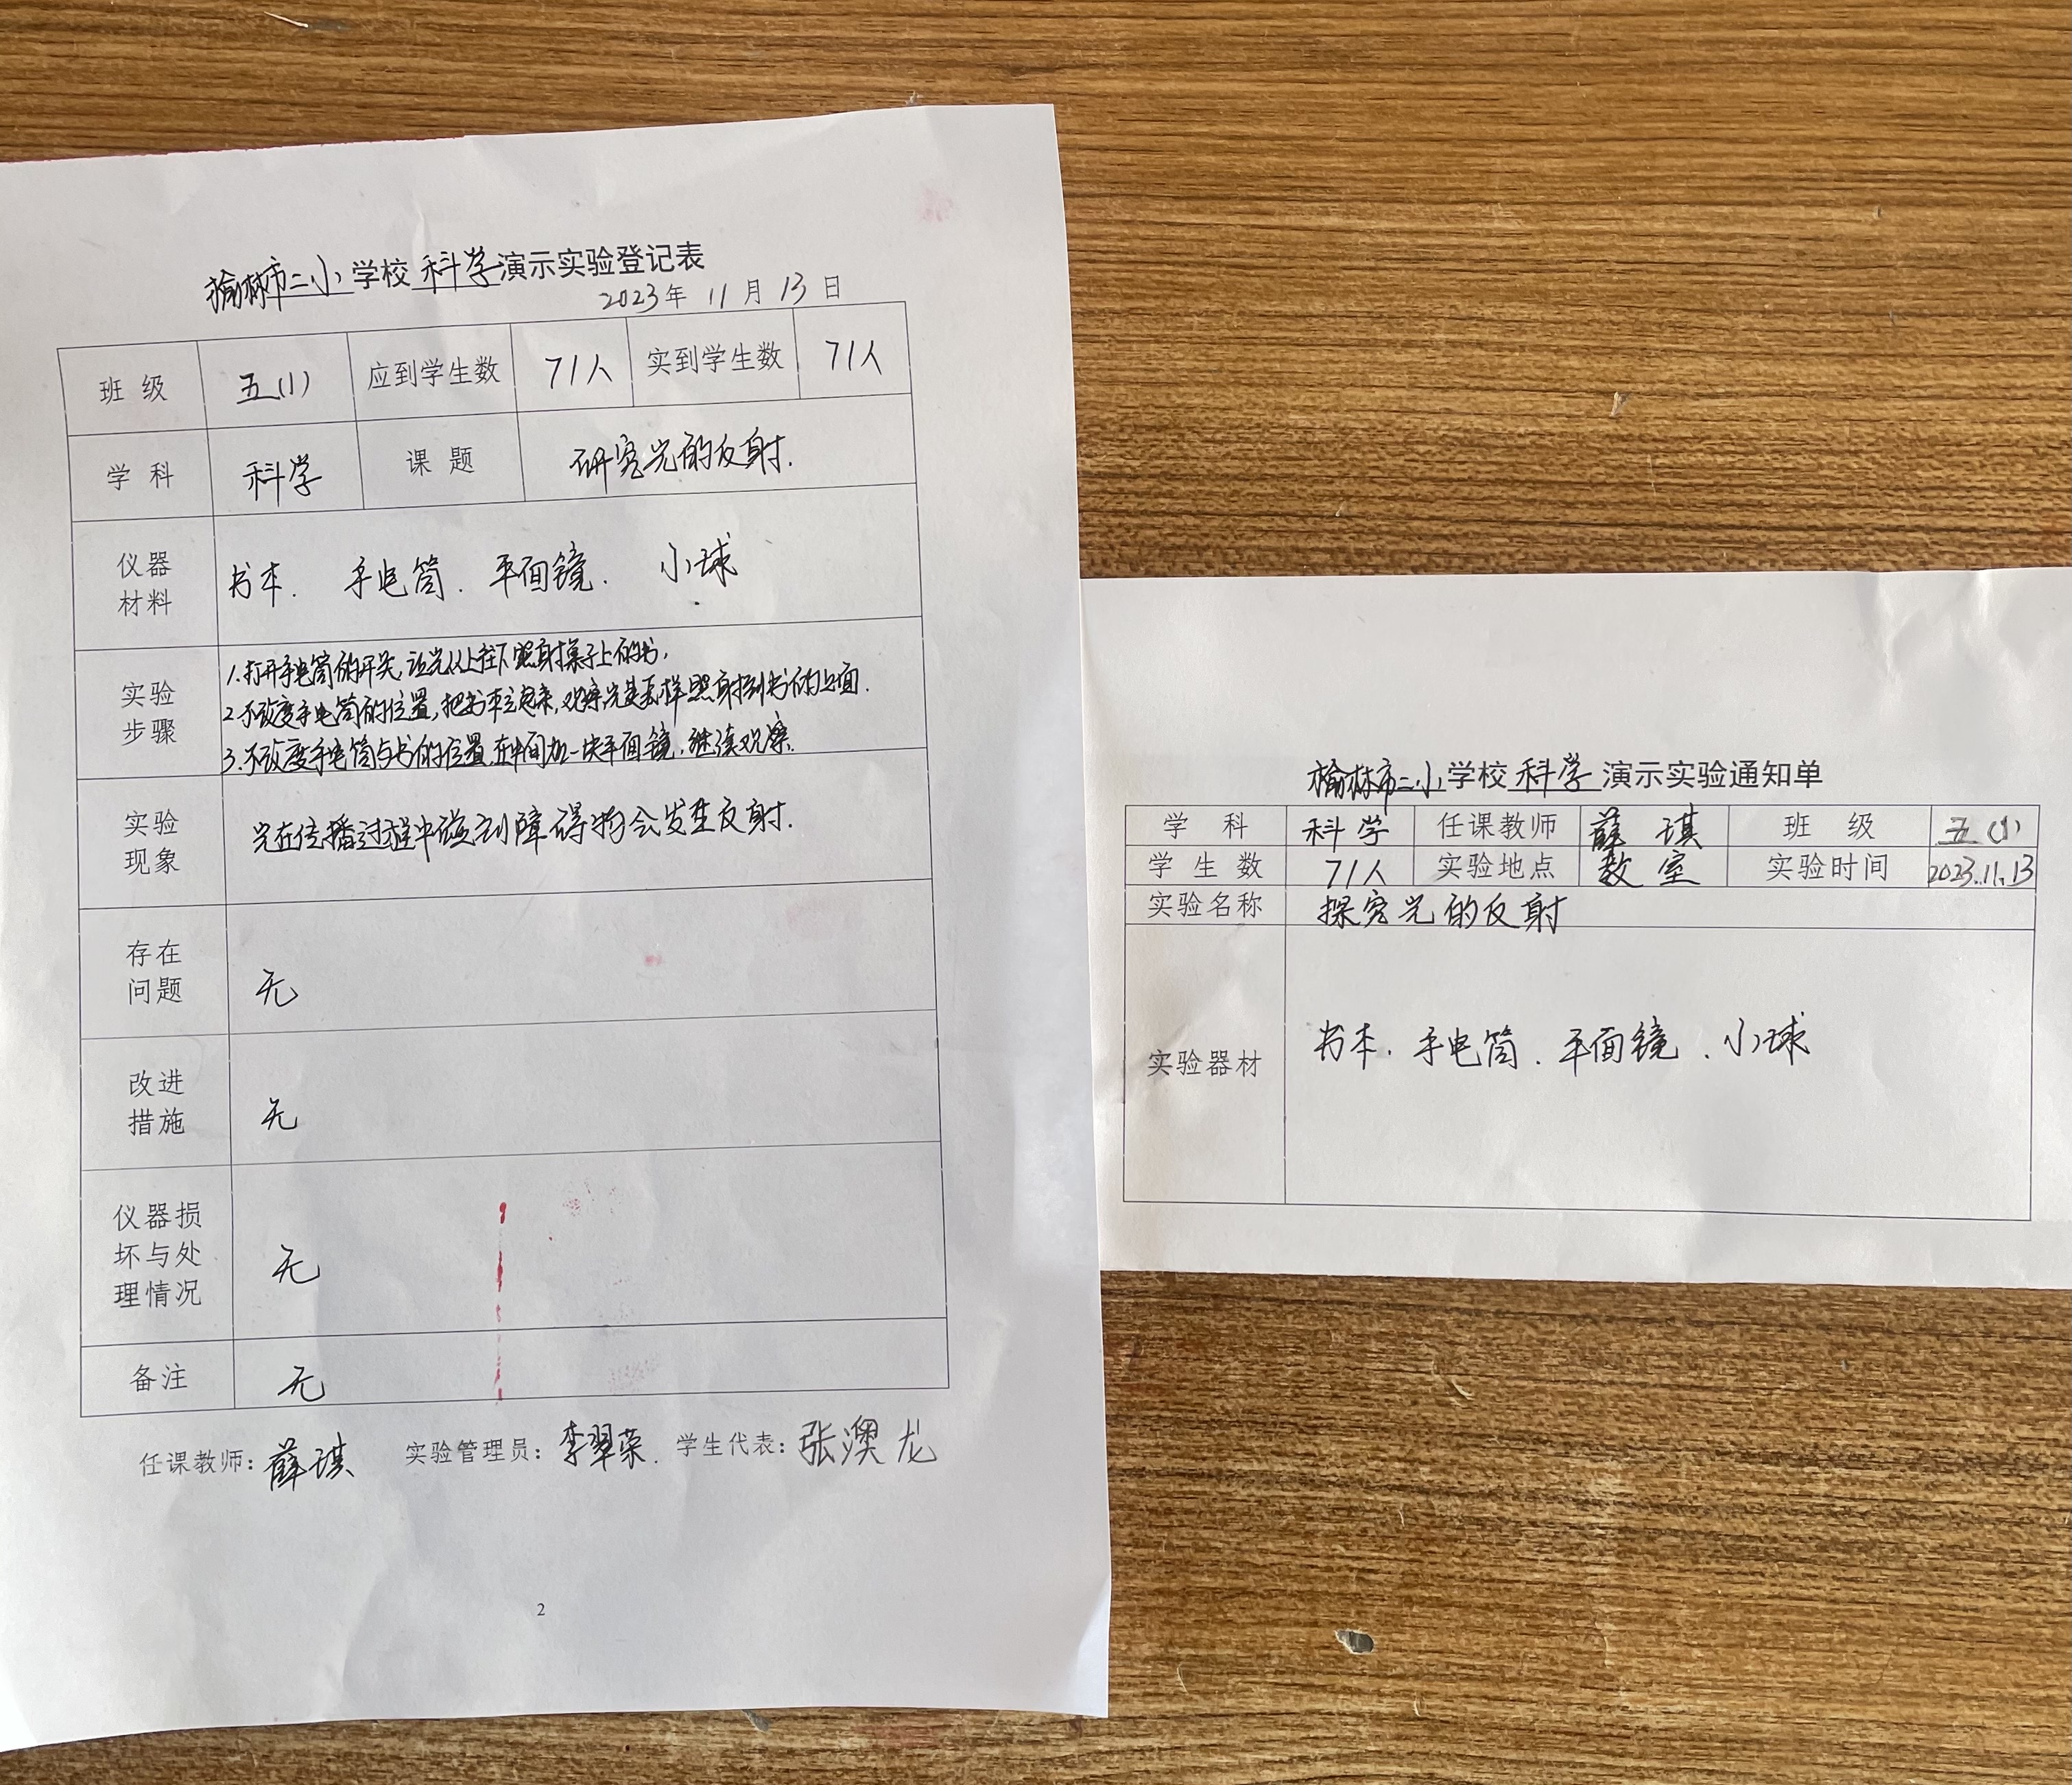 榆林市二小学校科学演示实验登记表
2023年 11月 13日
班级 五(1) 应到学生数 71人 实到学生数 71人
学科 科学 课题 研究光的反射.
仪器材料 书本. 手电筒. 平面镜. 小球
实验步骤
1.打开手电筒的开关,让光从上往下照射桌子上的书,
2.不改变手电筒的位置,把书本立起来,观察光是怎样照射到书的上面.
3.不改变手电筒与书的位置,在中间加一块平面镜,继续观察.
实验现象 光在传播过程中碰到障碍物会发生反射.
存在问题 无
改进措施 无
仪器损坏与处理情况 无
备注 无
任课教师:薛琪 实验管理员:李翠荣. 学生代表:张澳龙
2
榆林市二小学校科学演示实验通知单
学科 科学 任课教师 薛琪 班级 五(1)
学生数 71人 实验地点 教室 实验时间 2023.11.13
实验名称 探究光的反射
实验器材 书本. 手电筒. 平面镜. 小球